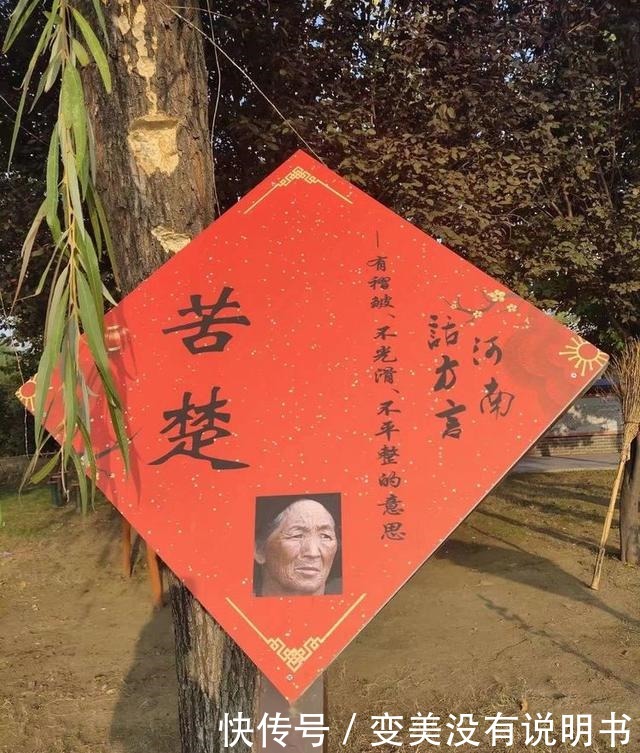 河南
话方言
—有褶皱、不光滑、不平整的意思
苦楚
快传号 / 变美没有说明书